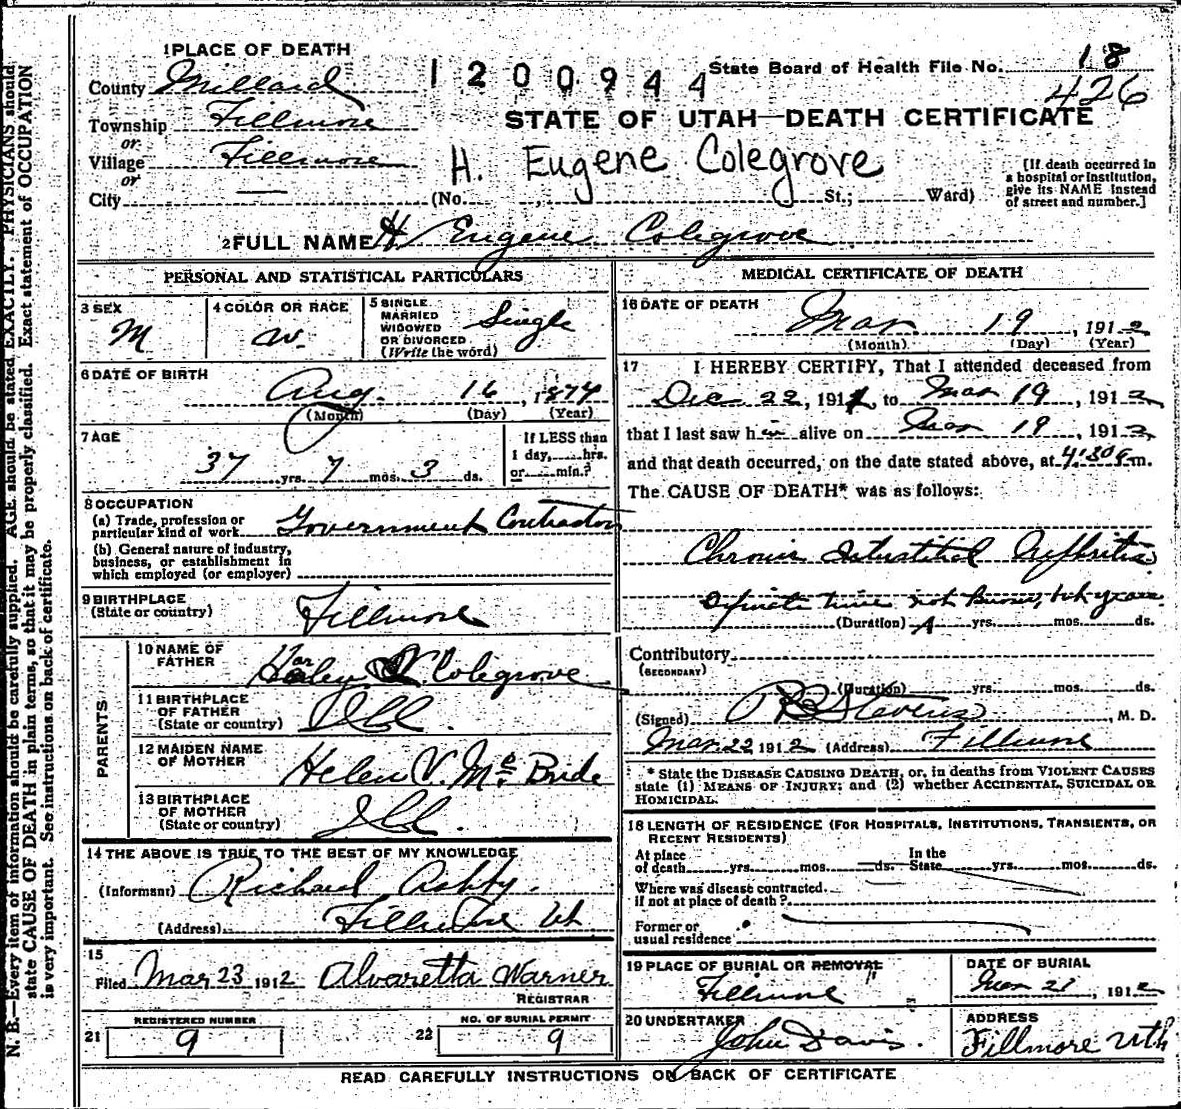 1 PLACE OF DEATH
County Millard
1200944
State Board of Health File No. 18
426
Township Fillmore
or
Village Fillmore
or
City —
STATE OF UTAH—DEATH CERTIFICATE
H. Eugene Colegrove
(No. , St.; Ward)
[If death occurred in a hospital or institution, give its NAME instead of street and number.]
2 FULL NAME H. Eugene Colegrove
PERSONAL AND STATISTICAL PARTICULARS
3 SEX
M
4 COLOR OR RACE
W.
5 SINGLE
MARRIED
WIDOWED
OR DIVORCED
(Write the word)
Single
6 DATE OF BIRTH
Aug. 16, 1874
(Month) (Day) (Year)
7 AGE
37 yrs. 7 mos. 3 ds.
If LESS than
1 day, hrs.
or min.?
8 OCCUPATION
(a) Trade, profession or
particular kind of work Government Contractor
(b) General nature of industry,
business, or establishment in
which employed (or employer)
9 BIRTHPLACE
(State or country) Fillmore
PARENTS
10 NAME OF
FATHER Colegrove
11 BIRTHPLACE
OF FATHER
(State or country) Ill
12 MAIDEN NAME
OF MOTHER Helen V. Mc Bride
13 BIRTHPLACE
OF MOTHER
(State or country) Ill.
14 THE ABOVE IS TRUE TO THE BEST OF MY KNOWLEDGE
(Informant) Richard Ashby.
(Address) Fillmore Ut
15
Filed Mar 23 1912 Alvaretta Warner
REGISTRAR
REGISTERED NUMBER
21 9
NO. OF BURIAL PERMIT
22 9
MEDICAL CERTIFICATE OF DEATH
16 DATE OF DEATH
Mar. 19, 1912
(Month) (Day) (Year)
17 I HEREBY CERTIFY, That I attended deceased from
Dec 22, 1911, to Mar 19, 1912,
that I last saw him alive on Mar 19, 1912,
and that death occurred, on the date stated above, at 4:30 m.
The CAUSE OF DEATH* was as follows:
Chronic Interstitial Nephritis
Definite time not known, years.
(Duration) yrs. mos. ds.
Contributory
(SECONDARY)
(Duration) yrs. mos. ds.
(Signed) Stevens, M. D.
Mar. 22 1912 (Address) Fillmore
* State the DISEASE CAUSING DEATH, or, in deaths from VIOLENT CAUSES
state (1) MEANS OF INJURY; and (2) whether ACCIDENTAL, SUICIDAL OR
HOMICIDAL.
18 LENGTH OF RESIDENCE (FOR HOSPITALS, INSTITUTIONS, TRANSIENTS, OR
RECENT RESIDENTS)
At place
of death yrs. mos. ds.
In the
State yrs. mos. ds.
Where was disease contracted
if not at place of death?
Former or
usual residence
19 PLACE OF BURIAL OR REMOVAL
Fillmore
DATE OF BURIAL
Mar 21, 1912
20 UNDERTAKER
John Davis.
ADDRESS
Fillmore Utah
READ CAREFULLY INSTRUCTIONS ON BACK OF CERTIFICATE
N. B.—Every item of information should be carefully supplied. AGE should be stated EXACTLY. PHYSICIANS should
state CAUSE OF DEATH in plain terms, so that it may be properly classified. Exact statement of OCCUPATION
is very important. See instructions on back of certificate.